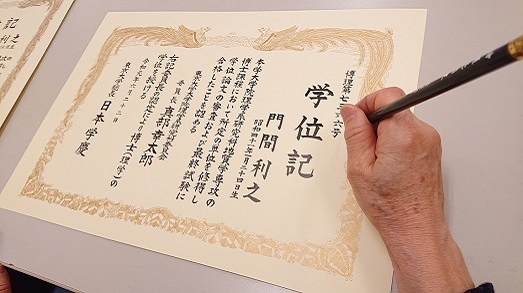 博理第七三六号
学位記
門間利之
本学大学院理学系研究科地質学専攻の
博士課程において所定の単位を修得し
学位論文の審査および最終試験に
合格したことを認める
東京大学大学院理学系研究科委員会
委員長 真部幸太郎
右記委員会の認定により博士(理学)の
学位を授ける
令和元年六月二十二日
東京大学総長 日本学慶
記
之